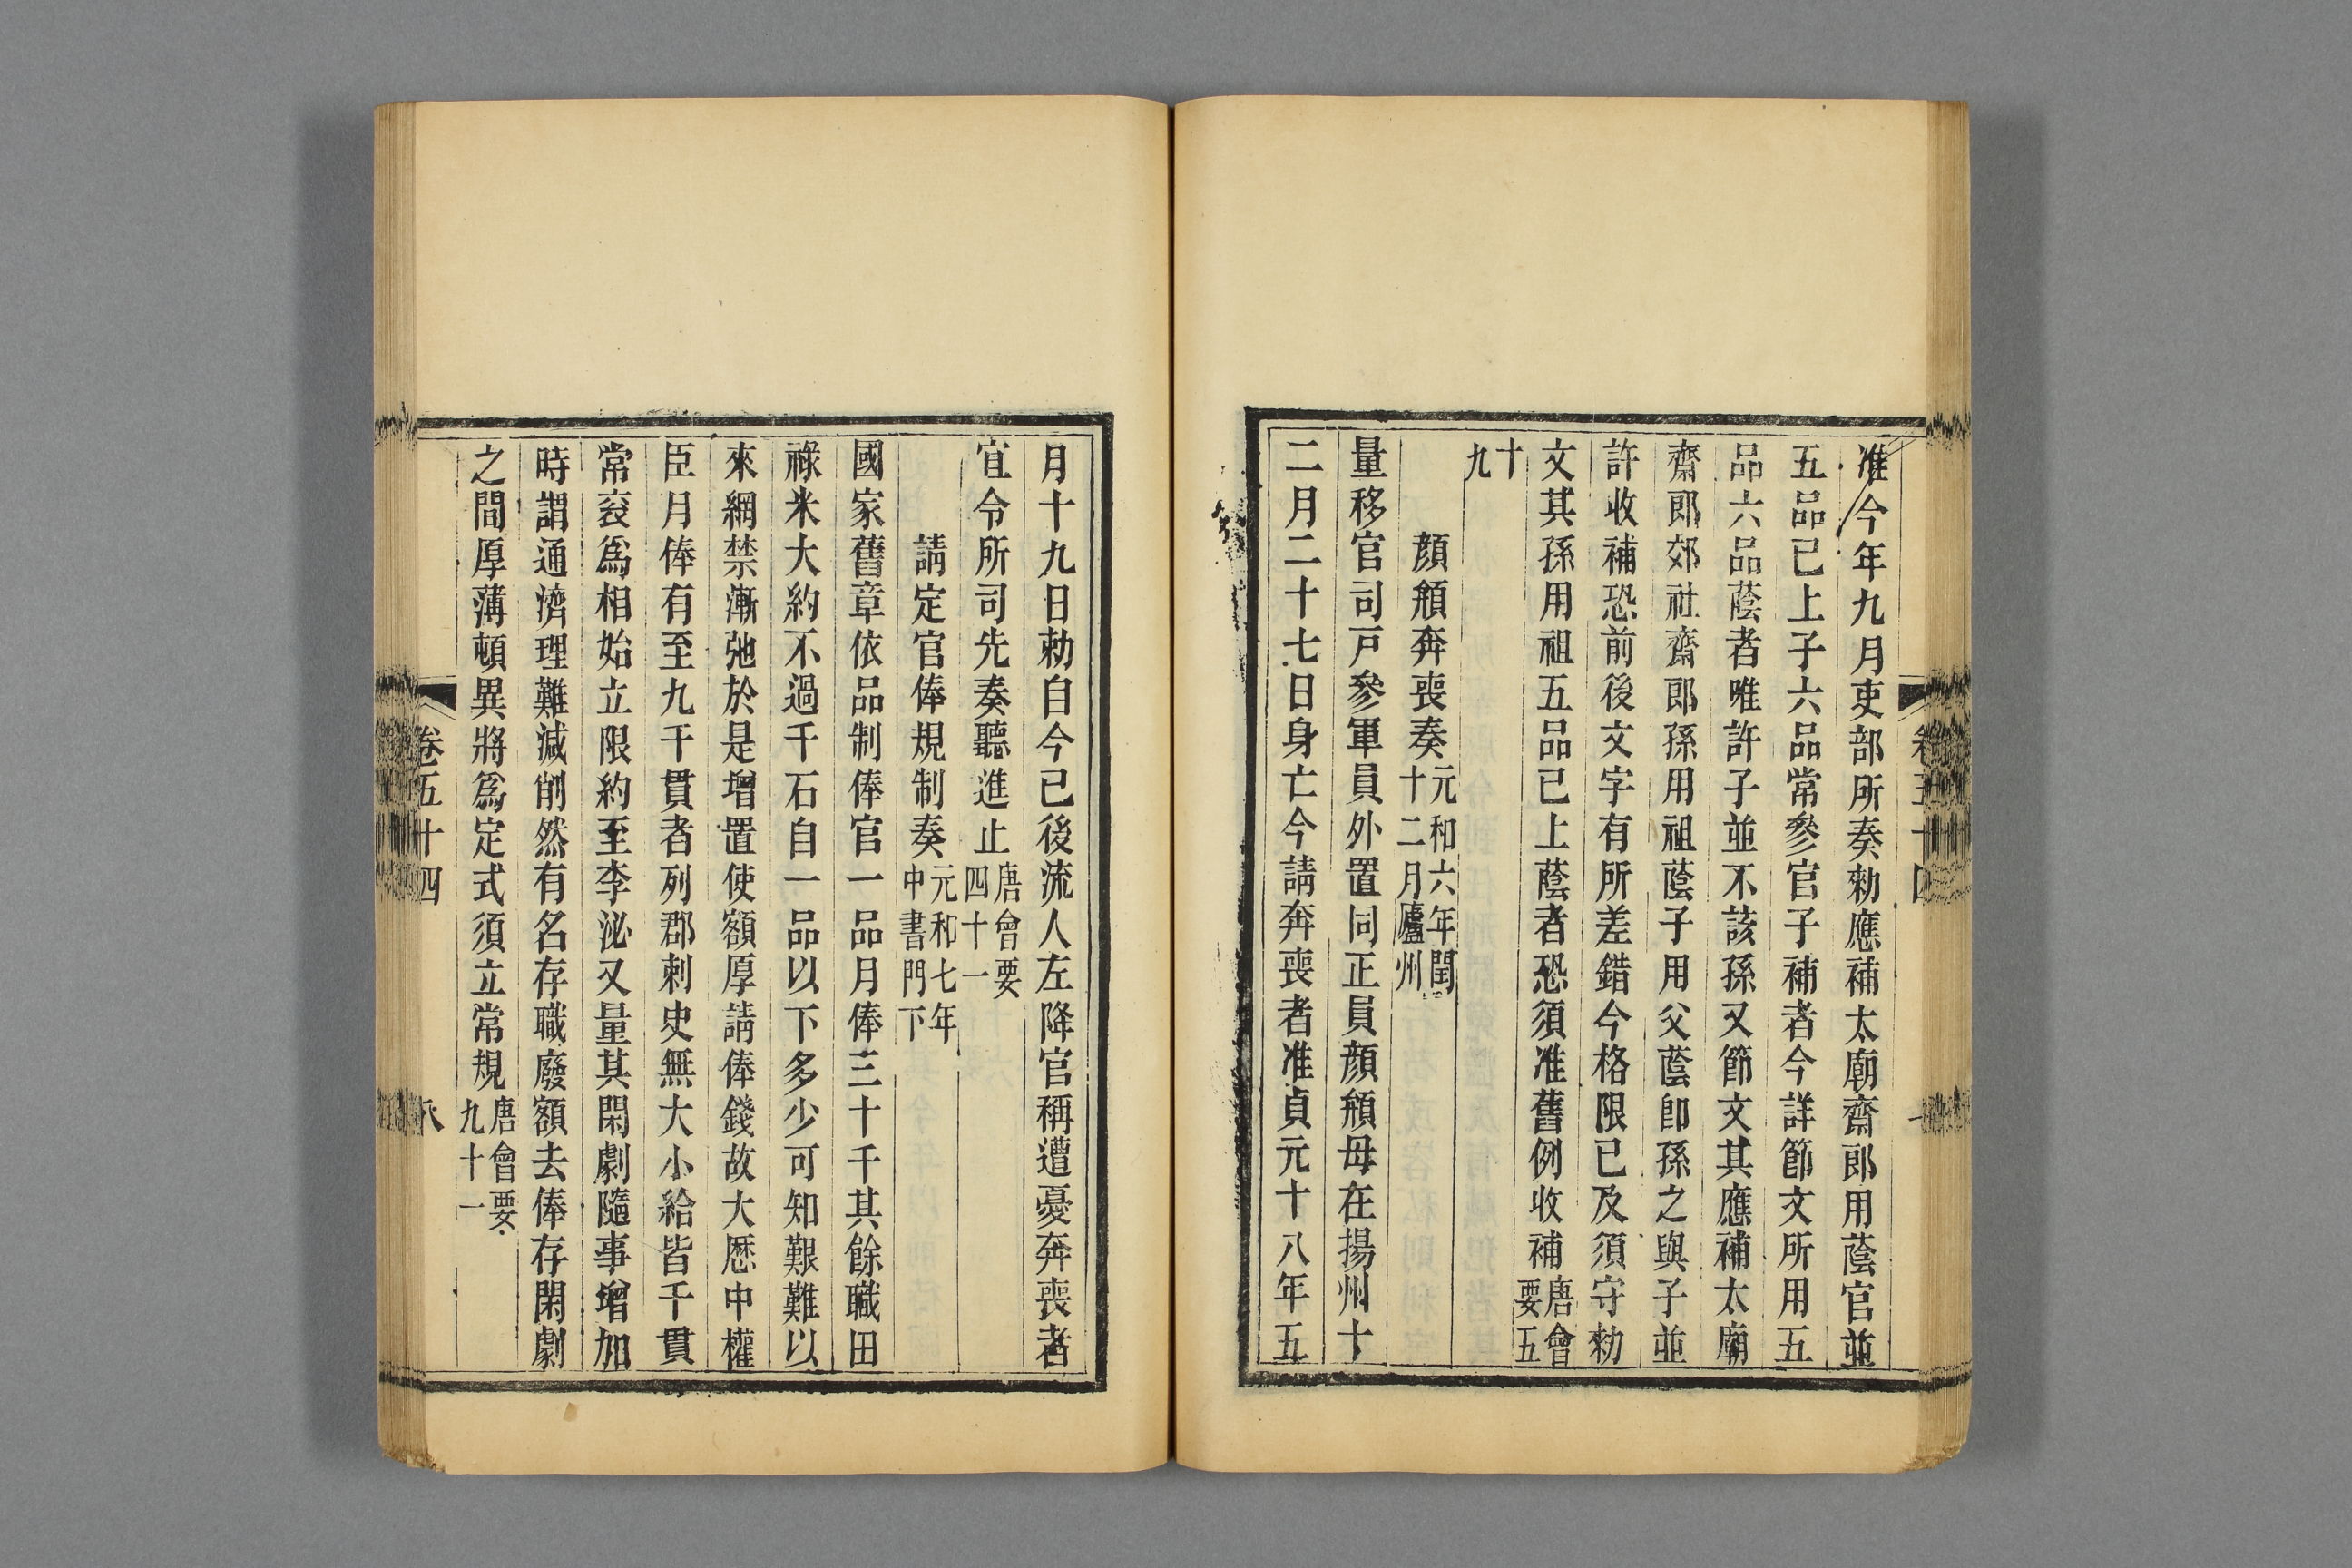 准今年九月吏部所奏勑應補太廟齋郎用蔭官並
五品已上子六品常參官子補者今詳節文所用五
品六品蔭者唯許子並不該孫又節文其應補太廟
齋郎郊社齋郎孫用祖蔭子用父蔭卽孫之與子並
許收補恐前後文字有所差錯今格限已及須守勑
文其孫用祖五品已上蔭者恐須准舊例收補唐會
要五
十
九
顔頵奔喪奏元和六年閏
十二月廬州
量移官司戸參軍員外置同正員顔頵母在揚州十
二月二十七日身亡今請奔喪者准貞元十八年五
月十九日勅自今已後流人左降官稱遭憂奔喪者
宜令所司先奏聽進止唐會要
四十一
請定官俸規制奏元和七年
中書門下
國家舊章依品制俸官一品月俸三十千其餘職田
祿米大約不過千石自一品以下多少可知艱難以
來綱禁漸弛於是增置使額厚請俸錢故大厯中權
臣月俸有至九千貫者列郡刺史無大小給皆千貫
常袞爲相始立限約至李泌又量其閑劇隨事增加
時謂通濟理難減削然有名存職廢額去俸存閑劇
之間厚薄頓異將爲定式須立常規唐會要
九十一
卷五十四